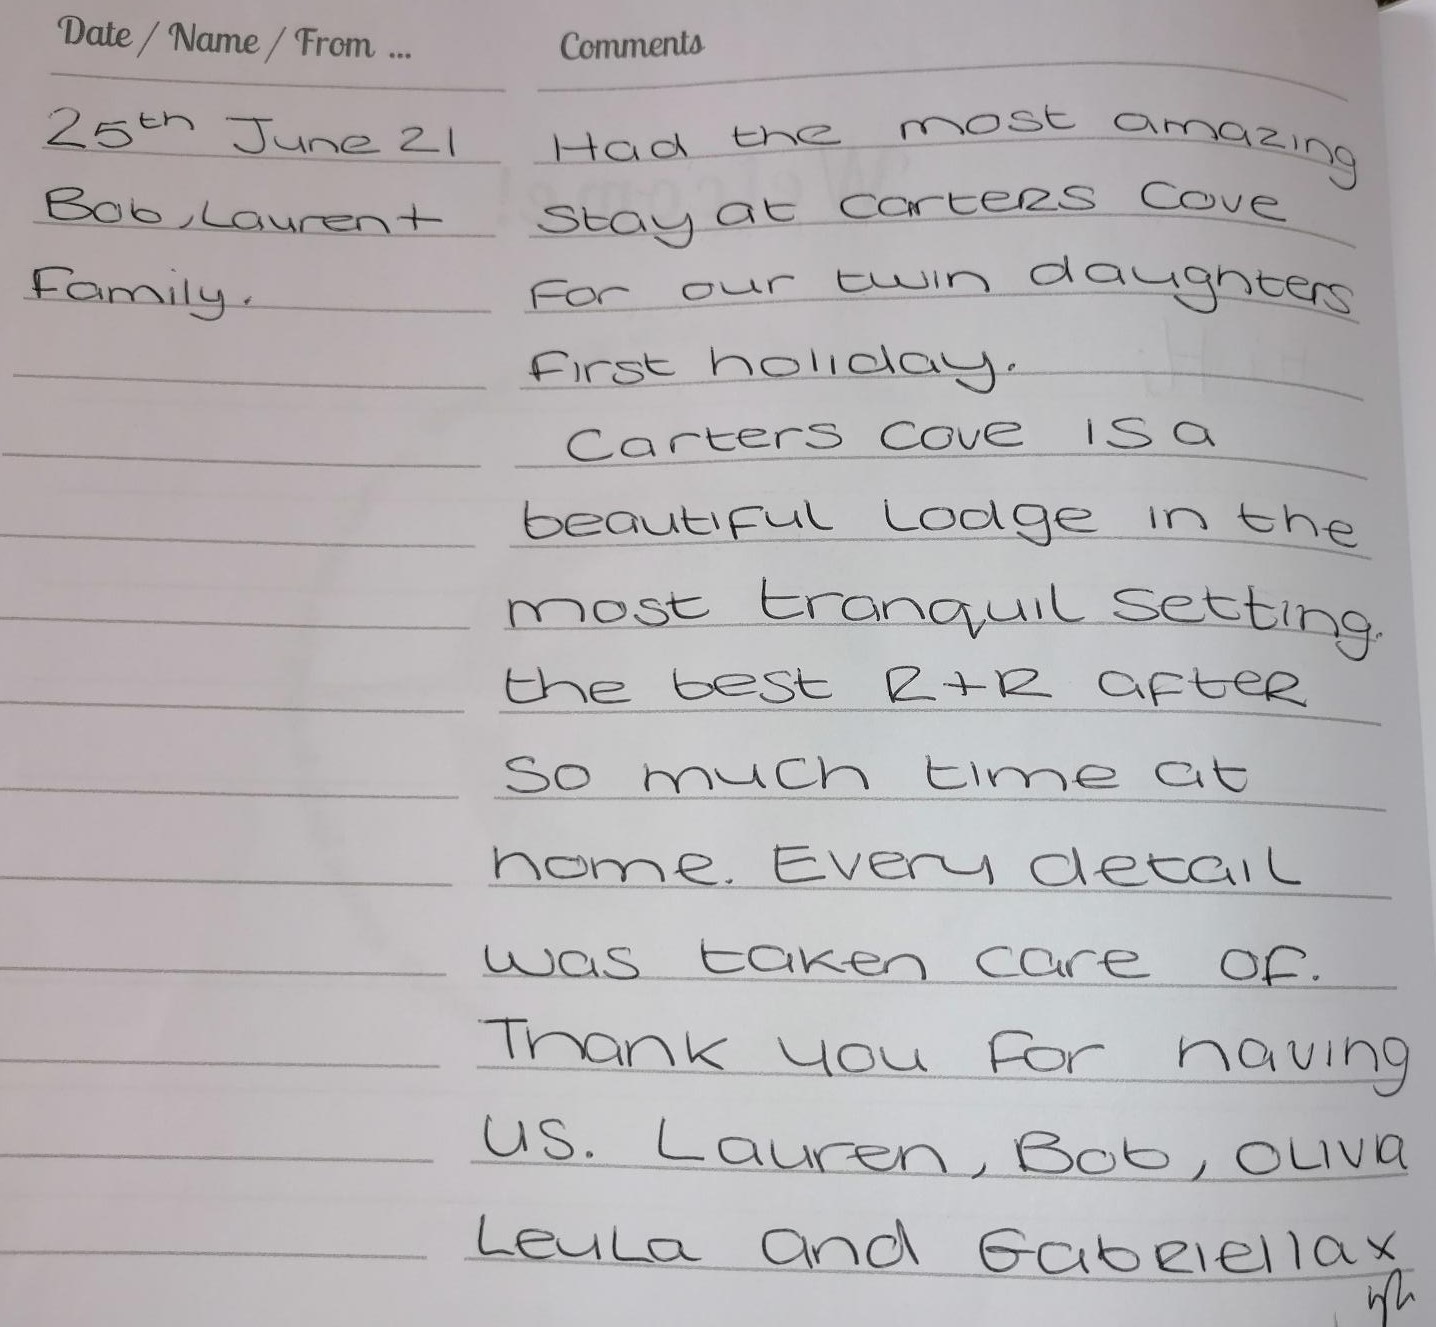 Date / Name / From ...
Comments
25th June 21
Bob, Lauren +
Family.
Had the most amazing
stay at Carters Cove
For our twin daughters
First holiday.
Carters Cove is a
beautiful Lodge in the
most tranquil setting.
the best R+R after
so much time at
home. Every detail
was taken care of.
Thank you for having
us. Lauren, Bob, Oliva
Leula and Gabriella x